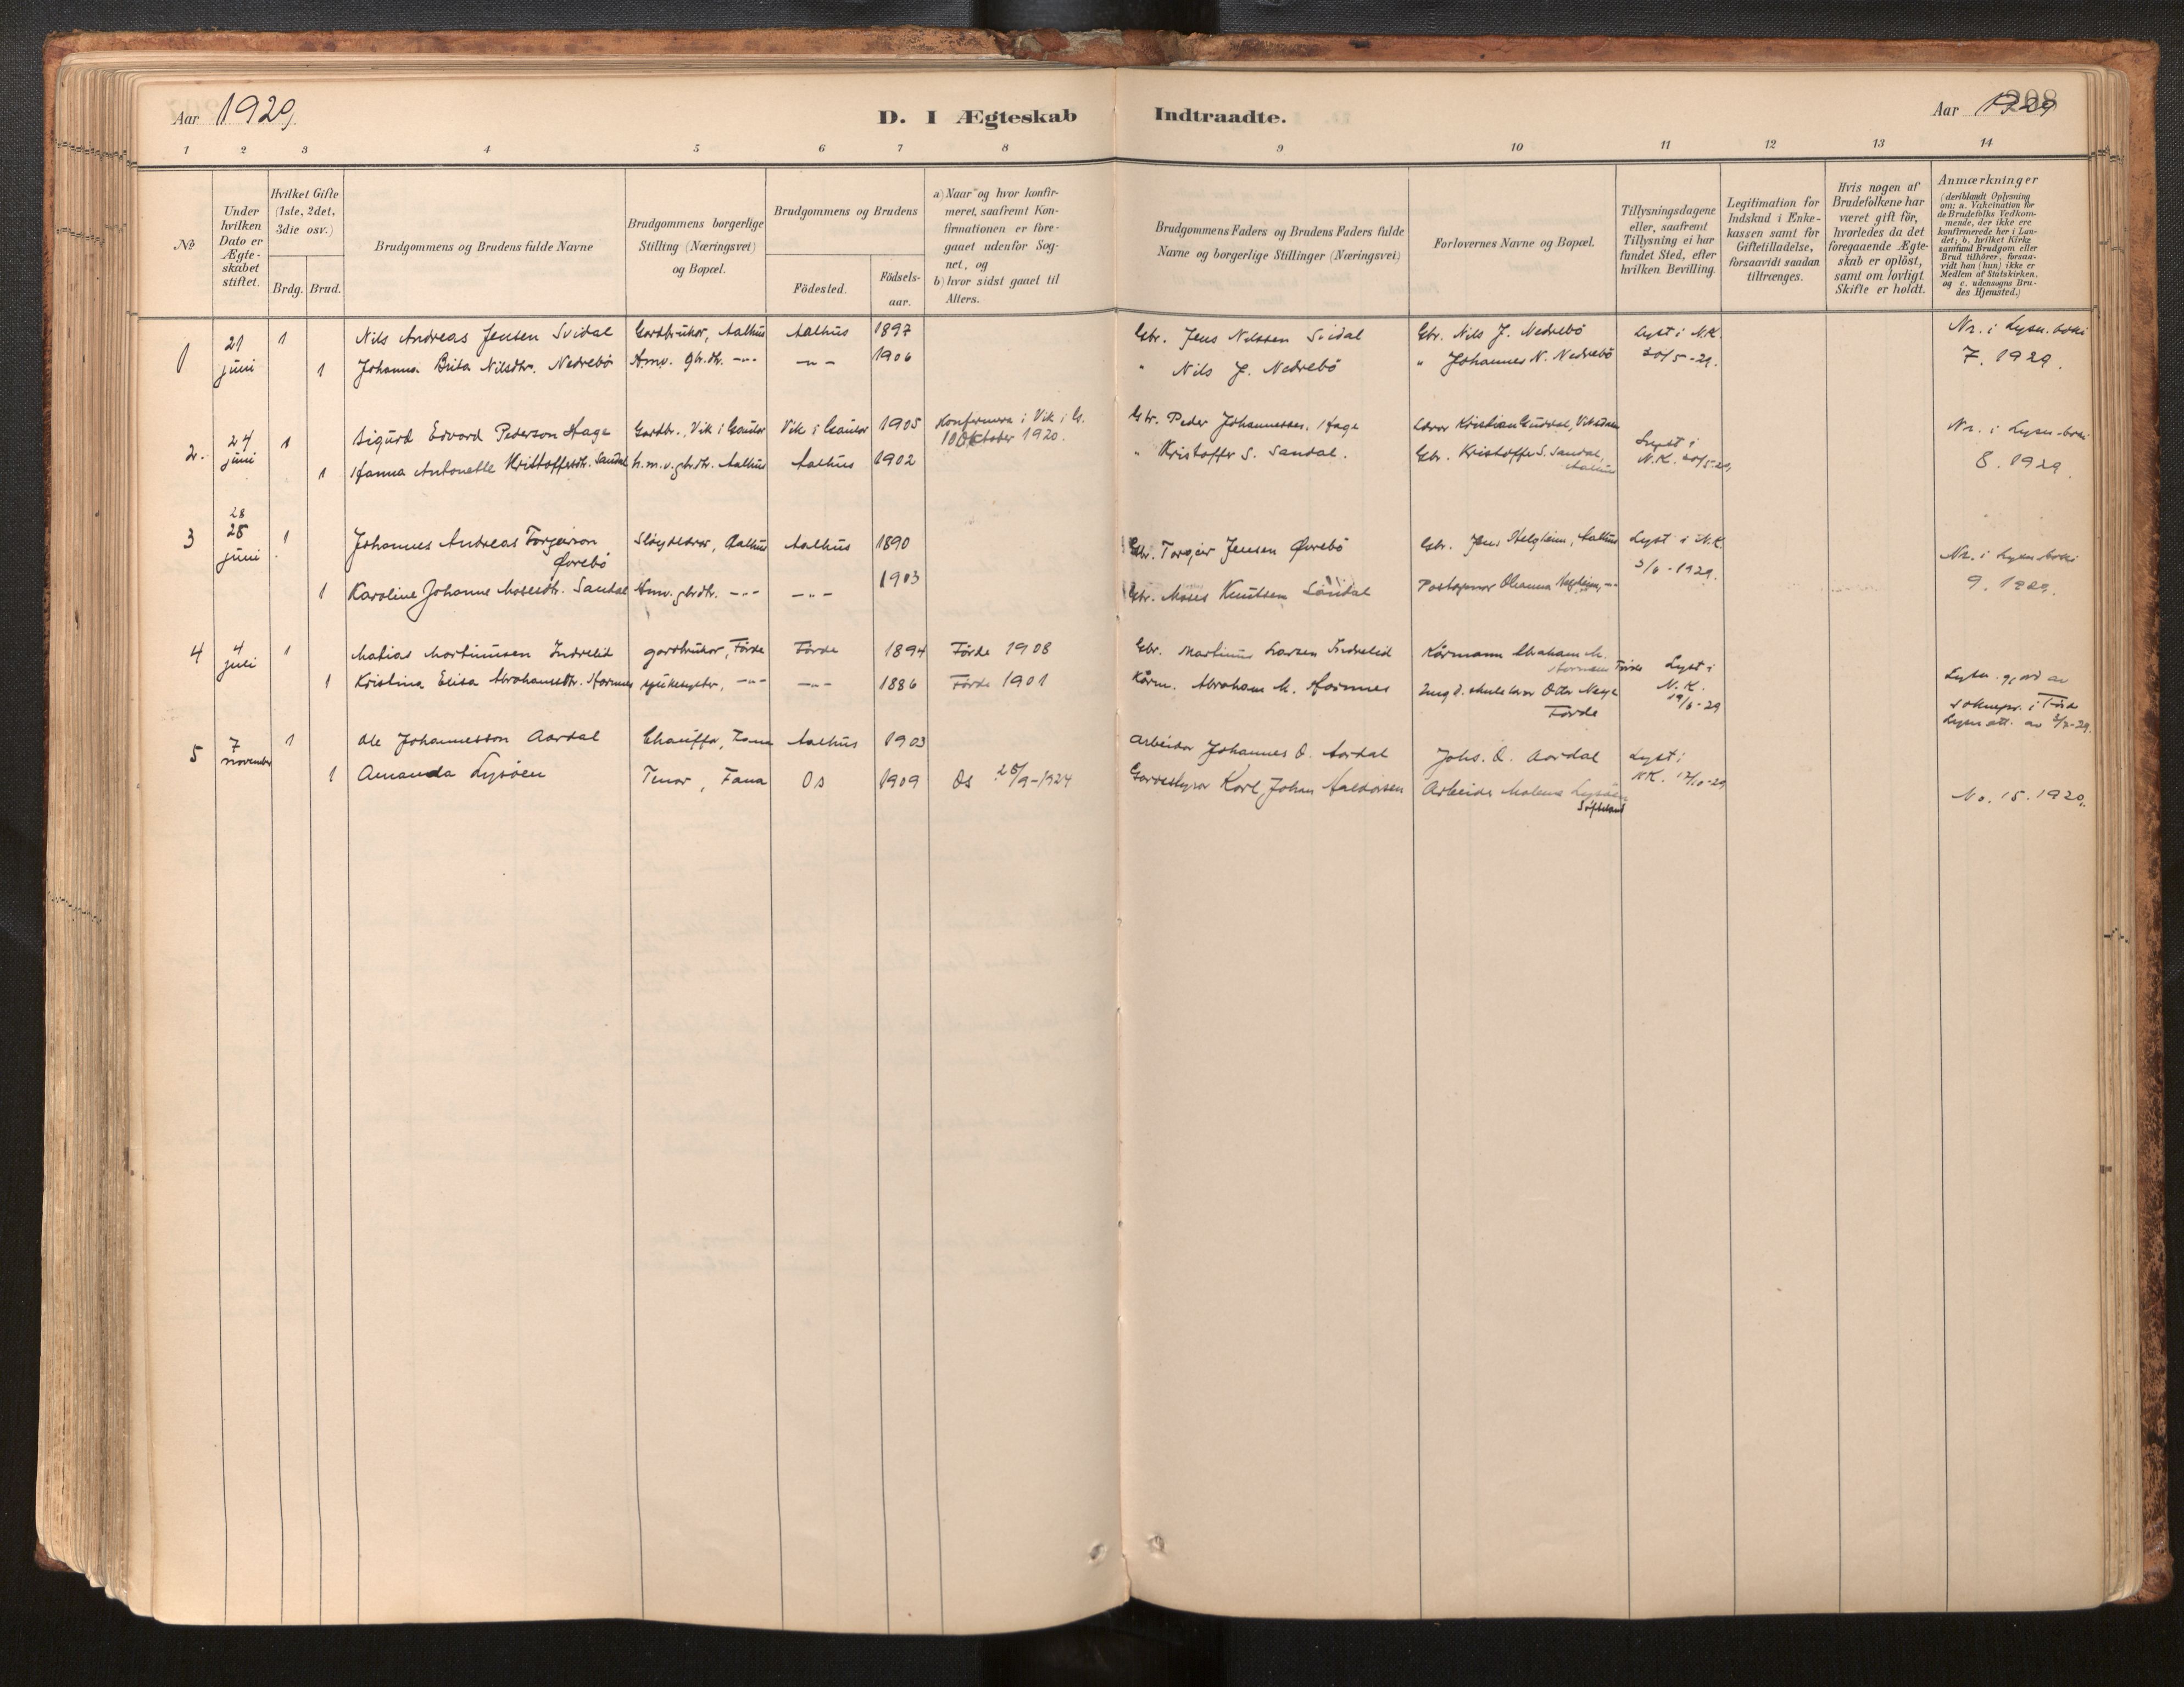 Aar 1929.
D. I Ægteskab Indtraadte.
Aar 1929
208
1 2 3 4 5 6 7 8 9 10 11 12 13 14
No
Under hvilken Dato er Ægteskabet stiftet.
Hvilket Gifte (1ste, 2det, 3die osv.)
Brdg. Brud.
Brudgommens og Brudens fulde Navne
Brudgommens borgerlige Stilling (Næringsvei) og Bopæl.
Brudgommens og Brudens
Födested.
Födsels-aar.
a) Naar og hvor konfir-
meret, saafremt Kon-
firmationen er fore-
gaaet udenfor Sog-
net, og
b) hvor sidst gaaet til
Alters.
Brudgommens Faders og Brudens Faders fulde
Navne og borgerlige Stillinger (Næringsvei)
Forlovernes Navne og Bopæl.
Tillysningsdagene
eller, saafremt
Tillysning ei har
fundet Sted, efter
hvilken Bevilling.
Legitimation for
Indskud i Enke-
kassen samt for
Giftetilladelse,
forsaavidt saadan
tiltrænges.
Hvis nogen af
Brudefolkene har
været gift för,
hvorledes da det
foregaaende Ægte-
skab er oplöst,
samt om lovligt
Skifte er holdt.
Anmærkninger
(deriblandt Oplysning
om: a. Vakcination for
de Brudefolks Vedkom-
mende, der ikke ere
konfirmerede her i Lan-
det; b. hvilket Kirke
samfund Brudgom eller
Brud tilhörer, forsaa-
vidt han (hun) ikke er
Medlem af Statskirken,
og c. udensogns Bru-
des Hjemsted.)
1 21 juni 1 Nils Andreas Jensen Svidal Gardbrukar, Aalhus Aalhus 1897 Gbr. Jens Nilssen Svidal Gbr. Nils J. Nedrebö Lyst i N.K. Nr. i Lysn.boki
1 Johanna Brita Nilsdtr. Nedrebö Hmv. gbr.dtr. -"- -"- 1906 " Nils J. Nedrebö " Johannes N. Nedrebö 20/5-29. 7. 1929.
2. 24 juni 1 Sigurd Edvard Pederson Hage Gardbr., Vik i Gaular Vik i Gaular 1905 Konfirmera i Vik i G. 10 Oktober 1920. Gbr. Peder Johannessen Hage Lærar Kristian Guddal, Viksdalen Nr. i Lysn.boki
1 Hanna Antonette Kristoffersdtr. Sandal h.m.v. gbrdtr. Aalhus Aalhus 1902 " Kristoffer S. Sandal. Gbr. Kristoffer S. Sandal, Aalhus Lyst i N.K. 20/5-29, 8. 1929.
3 28 28 juni 1 Johannes Andreas Torgeirson Øvrebö Slöydlærar, Aalhus Aalhus 1890 Gbr. Torgeir Jensen Øvrebö Gbr. Jens Helgheim, Aalhus Lyst i N.K. Nr. i Lysn.boki
1 Karoline Johanne Mosesdtr. Sandal Hmv. gbrdtr. -"- -"- 1903 Gbr. Moses Knutsen Sandal Postopnar Oleanna Helgheim, -"- 2/6-1929. 9. 1929.
4 4 juli 1 Matias Martinusen Indrelid gardbrukar, Förde Förde 1894 Förde 1908 Gbr. Martinus Larsen Indrelid Kårmann Abraham M. Hornnes Förde
1 Kristina Elisa Abrahamsdtr. Hornnes sjukesyster, -"- -"- 1886 Förde 1901 Kårm. Abraham M. Hornnes Otto Förde Lyst i N.K. 19/6-29 Lysn. gjord av soknepr. i Förde
Lysn.att. av 2/7-29.
5 7 november 1 Ole Johannesson Aardal Chauffør, Fana Aalhus 1903 Arbeidar Johannes O. Aardal Johs. O. Aardal Lyst i
1 Amanda Lysöen Tenar, Fana Os 1909 Os 28/9-1924 Gardstyrar Karl Johan Haldorsen Arbeidar Lysöen Söfteland N.K. 12/10-29 No. 15. 1929.